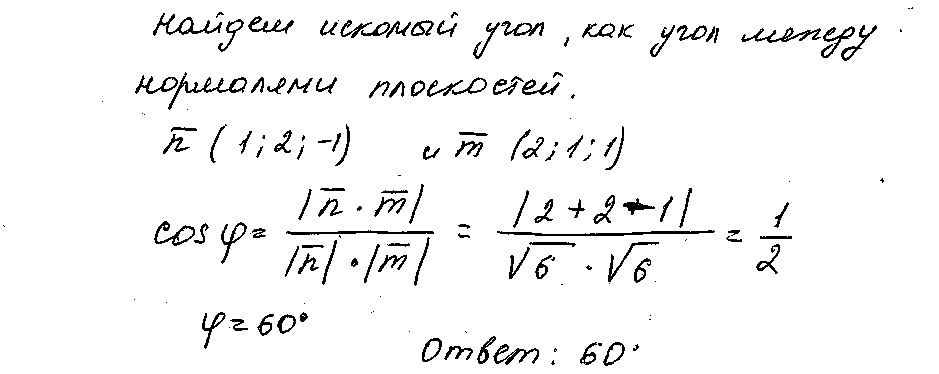 Найдем искомый угол, как угол между
нормалями плоскостей.
n̅ (1; 2; -1) и m̅ (2; 1; 1)
cos φ = |n̅ · m̅| / |n̅| · |m̅| = |2 + 2 - 1| / √6 · √6 = 1/2
φ = 60°
Ответ: 60°